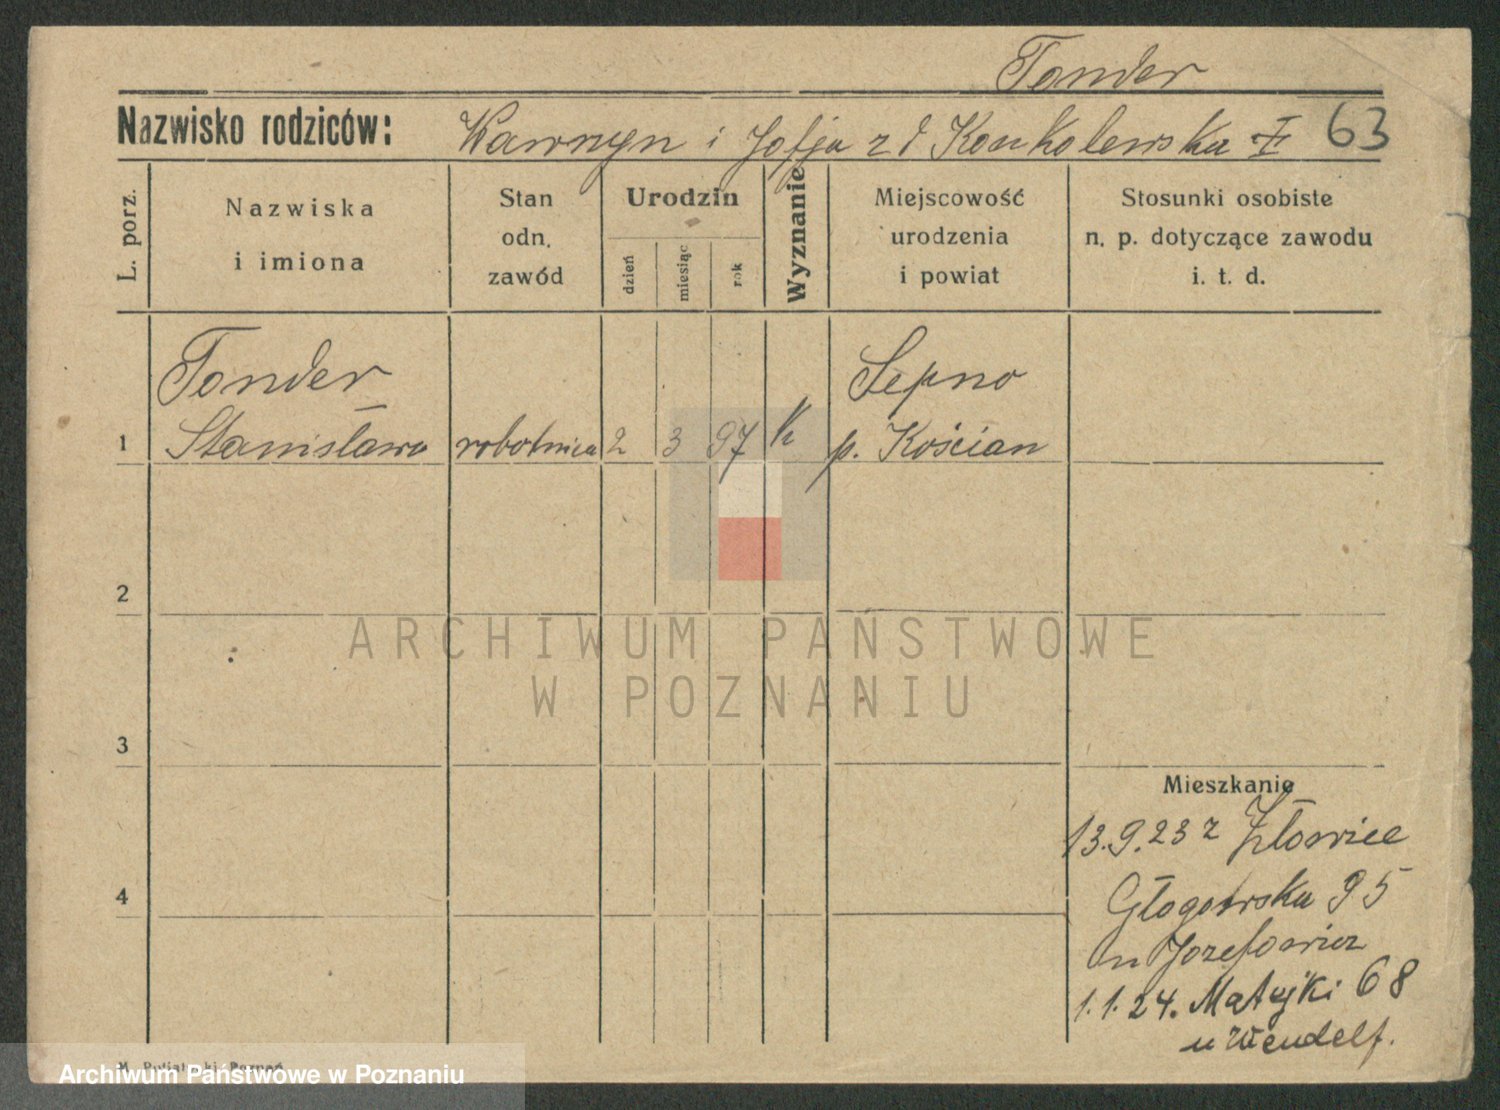 Tonder
Nazwisko rodziców: Wawrzyn i Zofja z d Konkolewska 63
L. porz.
Nazwiska
i imiona
Stan
odn.
zawód
Urodzin
dzień
miesiąc
rok
Wyznanie
Miejscowość
urodzenia
i powiat
Stosunki osobiste
n. p. dotyczące zawodu
i. t. d.
Tonder Sepno
1 Stanisława robotnica 2 3 97 k p. Kościan
2
ARCHIWUM PAŃSTWOWE
W POZNANIU
3
Mieszkanie
13.9.23 z
4
Głogowska 95
u Józefowicz
1.1.24. Matejki 68
u Wendelf.
Archiwum Państwowe w Poznaniu